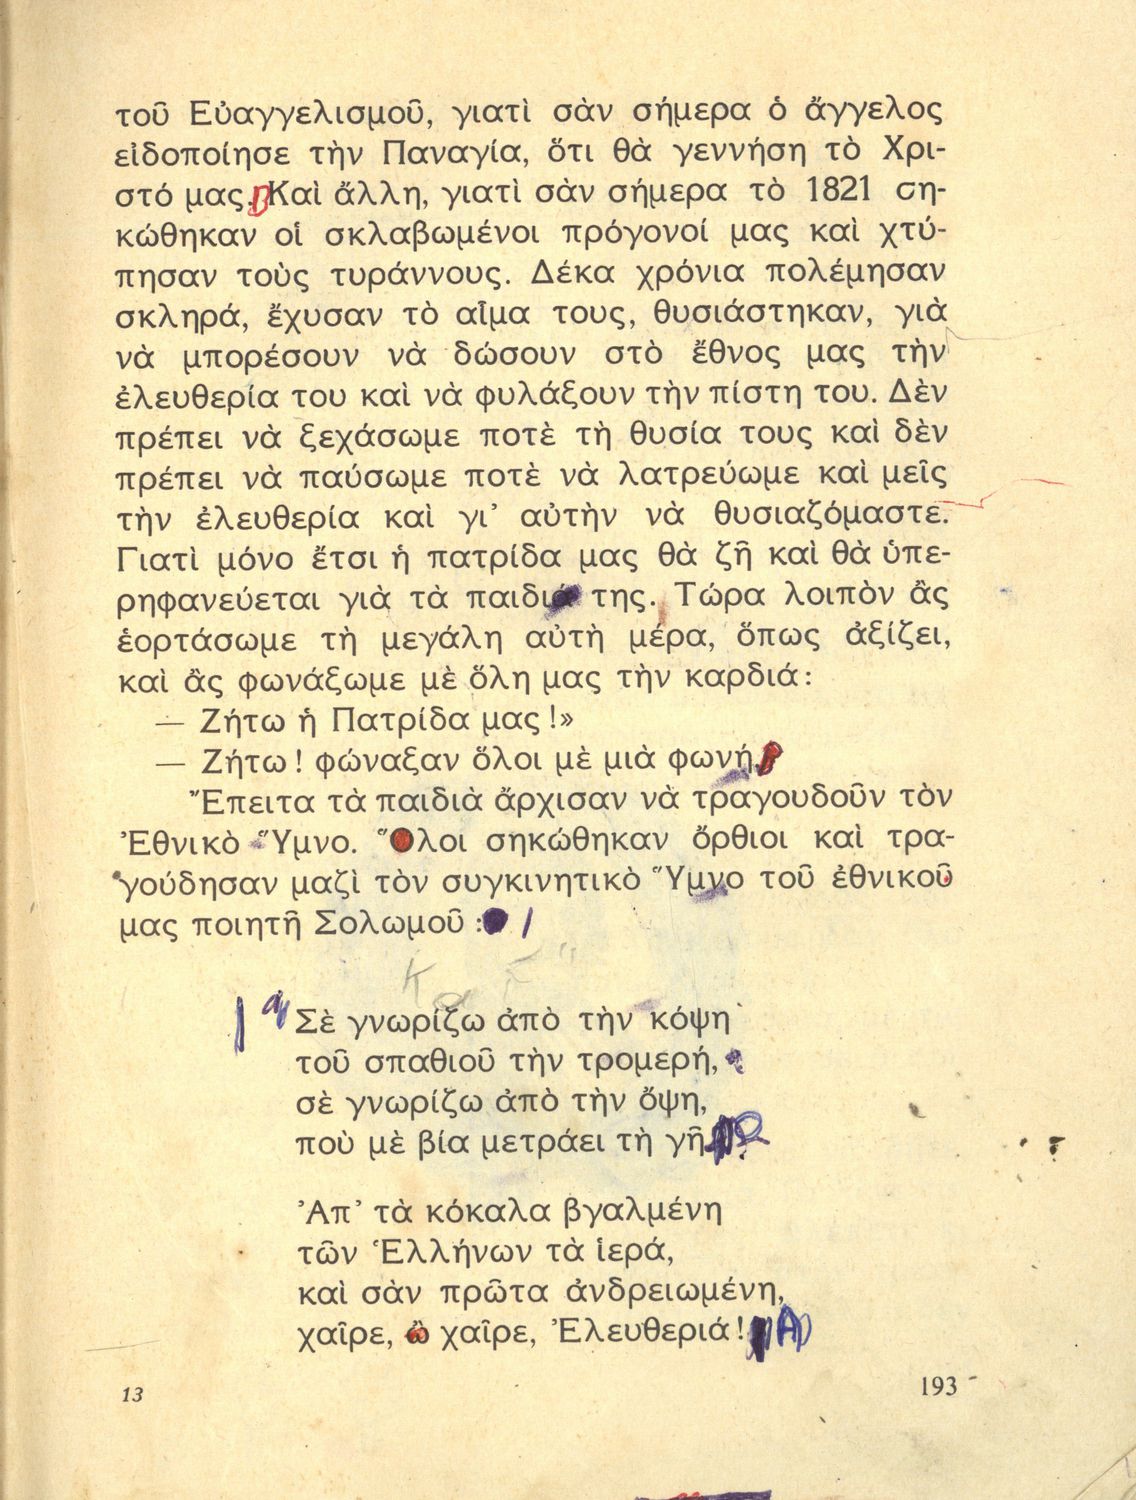 τοῦ Εὐαγγελισμοῦ, γιατὶ σὰν σήμερα ὁ ἄγγελος
εἰδοποίησε τὴν Παναγία, ὅτι θὰ γεννήση τὸ Χρι-
στό μας. Καὶ ἄλλη, γιατὶ σὰν σήμερα τὸ 1821 ση-
κώθηκαν οἱ σκλαβωμένοι πρόγονοί μας καὶ χτύ-
πησαν τοὺς τυράννους. Δέκα χρόνια πολέμησαν
σκληρά, ἔχυσαν τὸ αἷμα τους, θυσιάστηκαν, γιὰ
νὰ μπορέσουν νὰ δώσουν στὸ ἔθνος μας τὴν
ἐλευθερία του καὶ νὰ φυλάξουν τὴν πίστη του. Δὲν
πρέπει νὰ ξεχάσωμε ποτὲ τὴ θυσία τους καὶ δὲν
πρέπει νὰ παύσωμε ποτὲ νὰ λατρεύωμε καὶ μεῖς
τὴν ἐλευθερία καὶ γι' αὐτὴν νὰ θυσιαζόμαστε.
Γιατὶ μόνο ἔτσι ἡ πατρίδα μας θὰ ζῆ καὶ θὰ ὑπε-
ρηφανεύεται γιὰ τὰ παιδιά της. Τώρα λοιπὸν ἂς
ἑορτάσωμε τὴ μεγάλη αὐτὴ μέρα, ὅπως ἀξίζει,
καὶ ἂς φωνάξωμε μὲ ὅλη μας τὴν καρδιά:
— Ζήτω ἡ Πατρίδα μας!»
— Ζήτω! φώναξαν ὅλοι μὲ μιὰ φωνή.
Ἔπειτα τὰ παιδιὰ ἄρχισαν νὰ τραγουδοῦν τὸν
Ἐθνικὸ Ὕμνο. Ὅλοι σηκώθηκαν ὄρθιοι καὶ τρα-
γούδησαν μαζὶ τὸν συγκινητικὸ Ὕμνο τοῦ ἐθνικοῦ
μας ποιητῆ Σολωμοῦ:
Σὲ γνωρίζω ἀπὸ τὴν κόψη
τοῦ σπαθιοῦ τὴν τρομερή,
σὲ γνωρίζω ἀπὸ τὴν ὄψη,
ποὺ μὲ βία μετράει τὴ γῆ
Ἀπ' τὰ κόκαλα βγαλμένη
τῶν Ἑλλήνων τὰ ἱερά,
καὶ σὰν πρῶτα ἀνδρειωμένη,
χαῖρε, ὢ χαῖρε, Ἐλευθεριά!
13
193